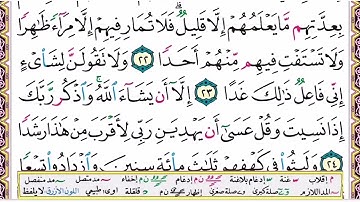 بِعِدَّتِهِم مَّا يَعْلَمُهُمْ إِلَّا قَلِيلٌ ۗ فَلَا تُمَارِ فِيهِمْ إِلَّا مِرَآءً ظَٰهِرًا
وَلَا تَسْتَفْتِ فِيهِم مِّنْهُمْ أَحَدًا ٢٢ وَلَا تَقُولَنَّ لِشَاْىْءٍ
إِنِّى فَاعِلٌ ذَٰلِكَ غَدًا ٢٣ إِلَّآ أَن يَشَآءَ ٱللَّهُ ۚ وَٱذْكُر رَّبَّكَ
إِذَا نَسِيتَ وَقُلْ عَسَىٰٓ أَن يَهْدِيَنِ رَبِّى لِأَقْرَبَ مِنْ هَٰذَا رَشَدًا ٢٤
وَلَبِثُوا۟ فِى كَهْفِهِمْ ثَلَٰثَ مِا۟ئَةٍ سِنِينَ وَٱزْدَادُوا۟ تِسْعًا
م إقلاب غنة إدغام بلاغنة ن م إدغام ن م إخفاء مد متصل مد منفصل
المد اللازم صلة كبرى صلة صغرى إظهار قلقلة طبيعي اللون الأزرق لا يلفظ